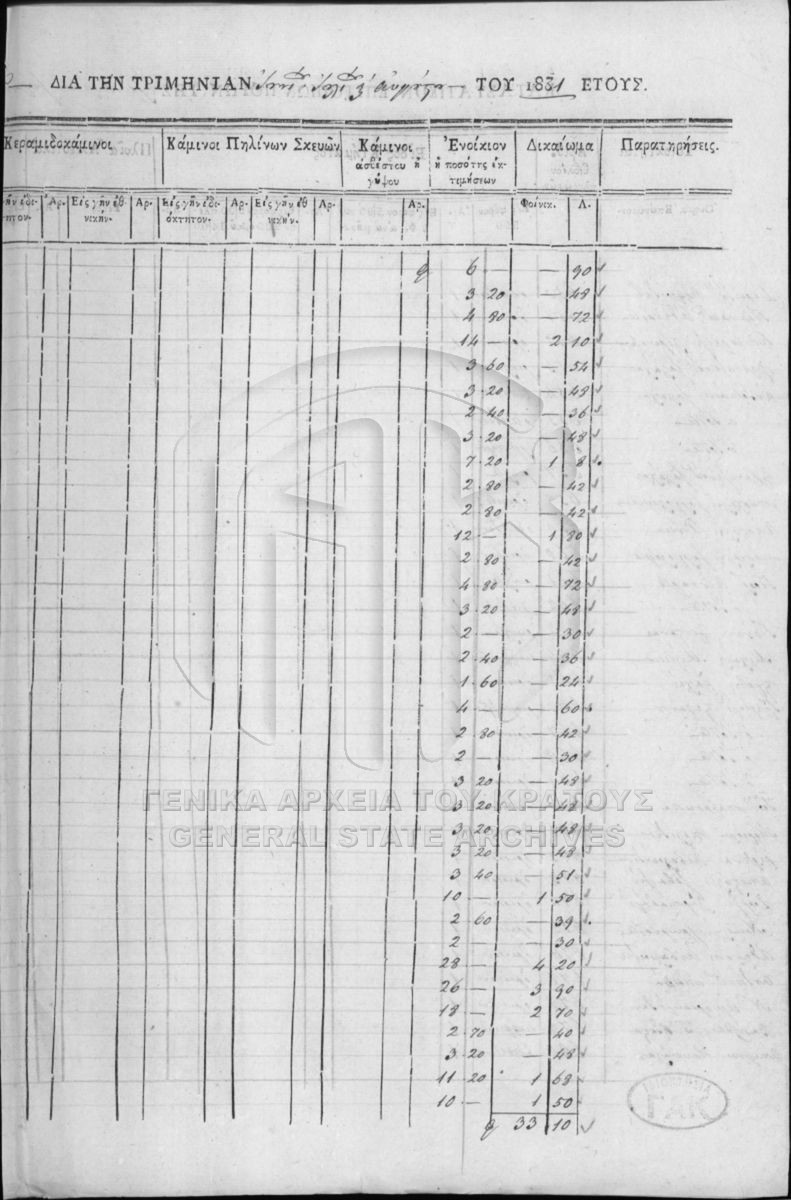 ΔΙΑ ΤΗΝ ΤΡΙΜΗΝΙΑΝ ΤΟΥ 1831 ΕΤΟΥΣ.
Κεραμιδοκάμινοι Κάμινοι Πηλίνων Σκευῶν Κάμινοι ἀσβέστου ἢ γύψου Ἐνοίκιον ἢ ποσότης ἐκτεμήσεων Δικαίωμα Παρατηρήσεις.
Ἀρ. Εἰς γῆν ἐθνικήν. Αρ. Εἰς γῆν ἰδιόκτητον. Αρ. Εἰς γῆν ἐθνικήν. Αρ. Αρ. Φοίνικ. Λ.
6 — — 90
3 20 — 48
4 80 — 72
14 — 2 10
3 60 — 54
3 20 — 48
2 40 — 36
3 20 — 48
7 20 1 8
2 80 — 42
2 80 — 42
12 — 1 80
2 80 — 42
4 80 — 72
3 20 — 48
2 — — 30
2 40 — 36
1 60 — 24
4 — — 60
2 80 — 42
2 — — 30
3 20 — 48
3 20 — 48
3 20 — 48
3 20 — 48
3 40 — 51
10 — 1 50
2 60 — 39
2 — — 30
28 — 4 20
26 — 3 90
18 — 2 70
2 70 — 40
3 20 — 48
11 20 1 68
10 — 1 50
33 10
ΓΕΝΙΚΑ ΑΡΧΕΙΑ ΤΟΥ ΚΡΑΤΟΥΣ
GENERAL STATE ARCHIVES